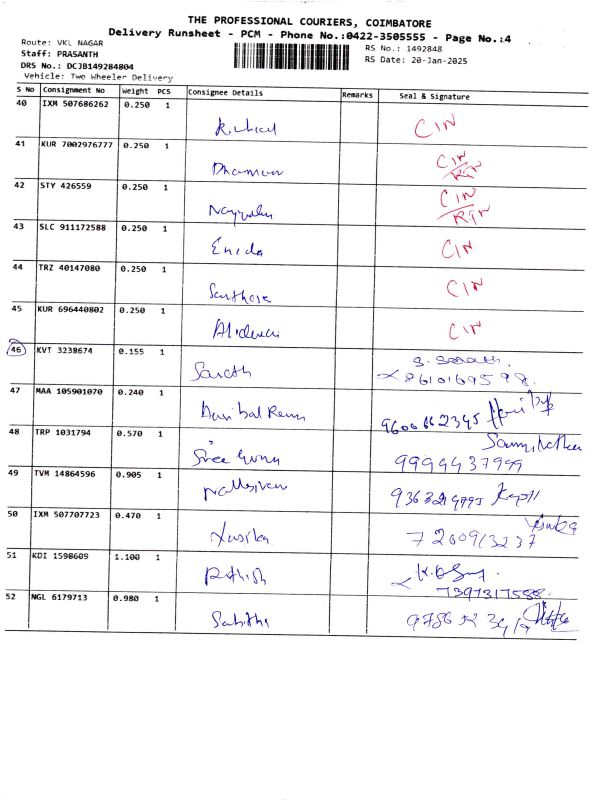 THE PROFESSIONAL COURIERS, COIMBATORE
Delivery Runsheet - PCM - Phone No.:0422-3505555 - Page No.:4
Route: VKL NAGAR
RS No.: 1492848
Staff: PRASANTH
RS Date: 20-Jan-2025
DRS No.: DCJB149284804
Vehicle: Two Wheeler Delivery
S No Consignment No Weight PCS Consignee Details Remarks Seal & Signature
40 IXM 507686262 0.250 1
CIN
41 KUR 7002976777 0.250 1
CIN
RTN
42 STY 426559 0.250 1
CIN
RTN
43 SLC 911172588 0.250 1
Enida CIN
44 TRZ 40147080 0.250 1
Santhose CIN
45 KUR 696440802 0.250 1
CIN
46 KVT 3238674 0.155 1
Sarath 8610169598
47 MAA 105901070 0.240 1
48 TRP 1031794 0.570 1
49 TVM 14864596 0.905 1
50 IXM 507707723 0.470 1
7200913237
51 KDI 1598609 1.100 1
Rithish
7397317588
52 NGL 6179713 0.980 1
Sabitha